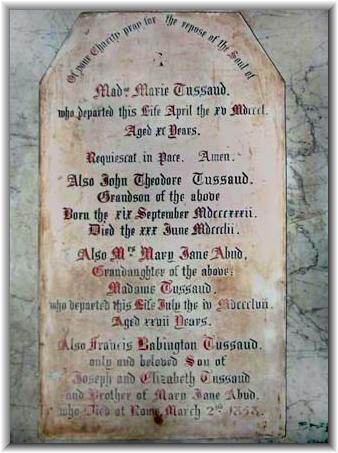 Of your Charity pray for the repose of the Soul of
Madme Marie Tussaud.
who departed this Life April the xv Mdcccl.
Aged xc Years.
Requiescat in Pace. Amen.
Also John Theodore Tussaud.
Grandson of the above
Born the xix September Mdcccxxxii.
Died the xxx June Mdccclii.
Also Mrs Mary Jane Abud,
Grandaughter of the above:
Madame Tussaud,
who departed this Life July the iv Mdccclvii.
Aged xxvii Years.
Also Francis Babington Tussaud.
only and beloved Son of
Joseph and Elizabeth Tussaud
and Brother of Mary Jane Abud.
who Died at Rome, March 2nd 1858.